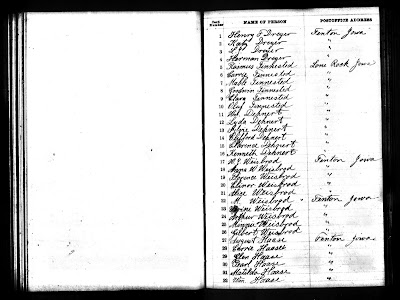 Card Number NAME OF PERSON POSTOFFICE ADDRESS
1 Henry F Dreyer Fenton Iowa
2 Katy Dreyer "
3 Dreyer "
4 Herman Dreyer "
5 Rasmus Finnestad Lone Rock Iowa
6 Carrie Finnestad "
7 Mable Finnestad "
8 Finnestad "
9 Clara Finnestad "
10 Olaf Finnestad "
11 Wm Dehnert "
12 Lyda Dehnert "
13 Dehnert "
14 Clifford Dehnert "
15 Clarence Dehnert "
16 Kenneth Dehnert "
17 W. J. Weisbrod Fenton Iowa
18 Anna W Weisbrod "
19 Florence Weisbrod "
20 Elinor Weisbrod "
21 Alice Weisbrod "
22 M Weisbrod " Fenton Iowa
23 Weisbrod "
24 Arthur Weisbrod "
25 Weisbrod "
26 Gilbert Weisbrod "
27 August Haase Fenton Iowa
28 Carrie Haase "
29 Glen Haase "
30 Pearl Haase "
31 Matilda Haase "
32 Wm Haase "